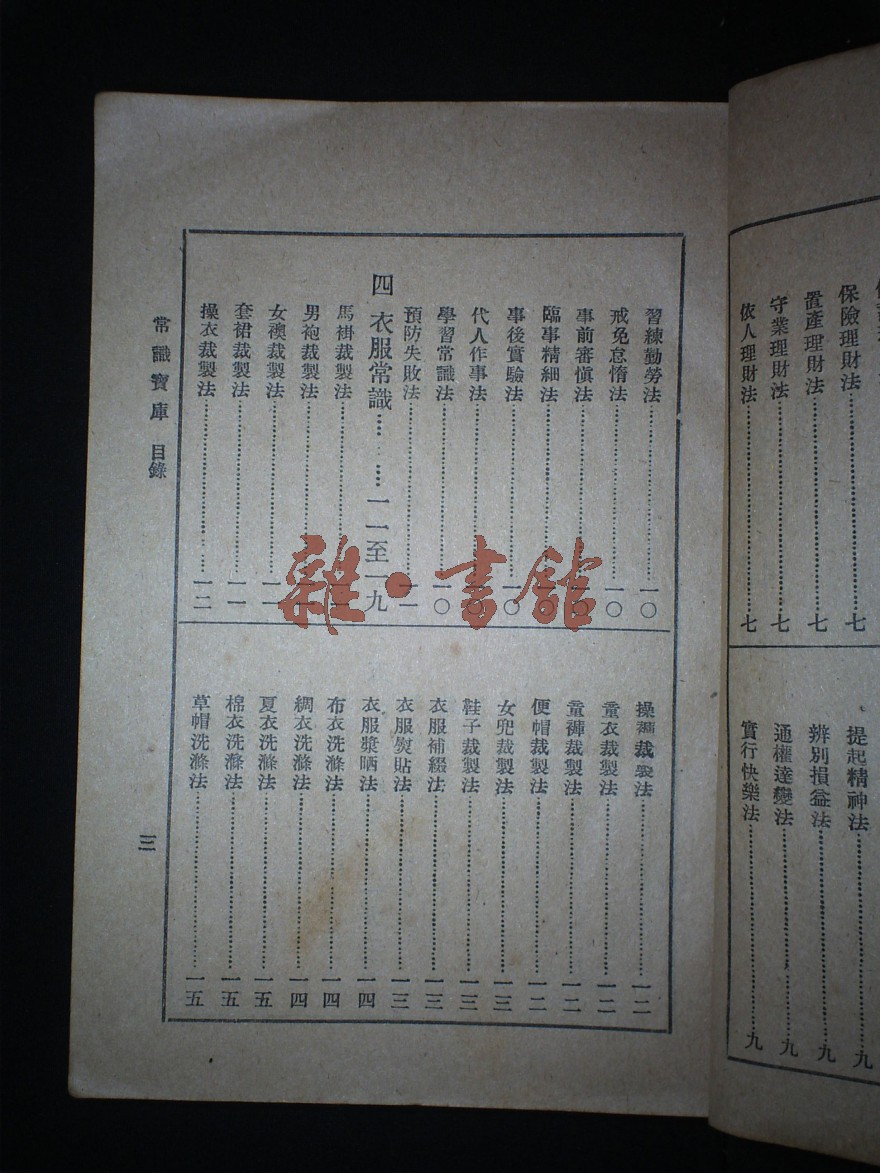 保險理財法……七
置產理財法……七
守業理財法……七
依人理財法……七
提起精神法……九
辨別損益法……九
通權達變法……九
實行快樂法……九
習練勤勞法……一〇
戒免怠惰法……一〇
事前審慎法……一〇
臨事精細法……一〇
事後實驗法……一〇
代人作事法……一〇
學習常識法……一〇
預防失敗法……一一
四 衣服常識……一一至一九
馬褂裁製法……一一
男袍裁製法……一一
女襖裁製法……一一
套裙裁製法……一一
操衣裁製法……一二
操褲裁製法……一二
童衣裁製法……一二
童褲裁製法……一二
便帽裁製法……一二
女兜裁製法……一三
鞋子裁製法……一三
衣服補綴法……一三
衣服熨貼法……一三
衣服漿晒法……一四
布衣洗滌法……一四
綢衣洗滌法……一四
夏衣洗滌法……一五
棉衣洗滌法……一五
草帽洗滌法……一五
常識寶庫 目錄
三
雜·書館